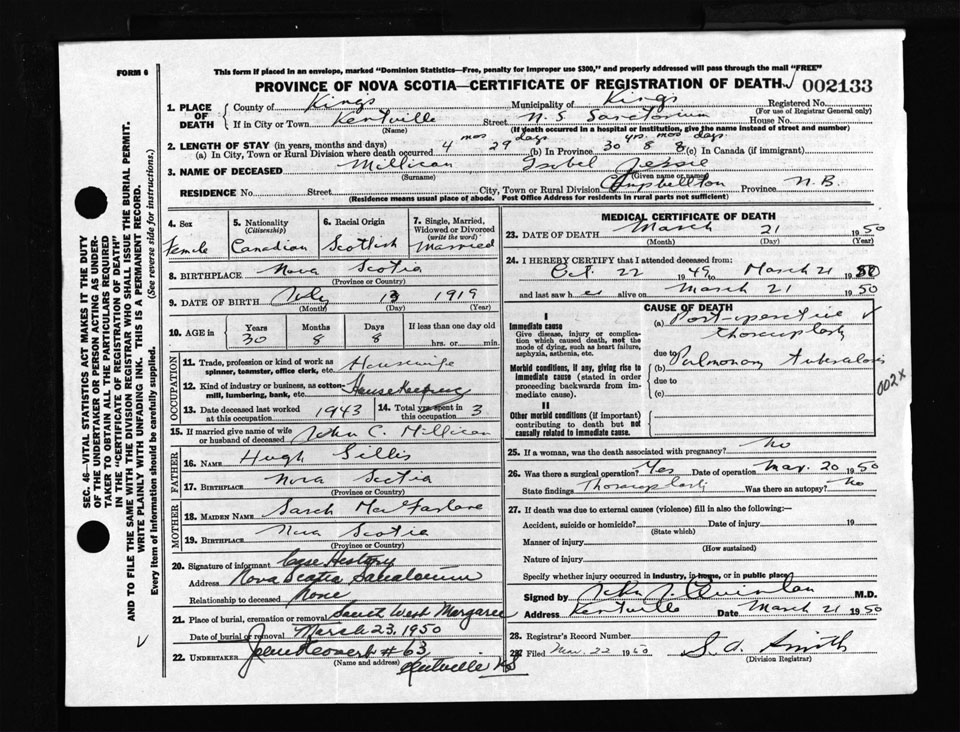 FORM 6
This form if placed in an envelope, marked "Dominion Statistics—Free, penalty for improper use $300," and properly addressed will pass through the mail "FREE"
PROVINCE OF NOVA SCOTIA—CERTIFICATE OF REGISTRATION OF DEATH 002133
1. PLACE OF DEATH County of Kings Municipality of Kings Registered No.
(For use of Registrar General only)
If in City or Town Kentville Street N.S Sanctorium House No.
(Name) (If death occurred in a hospital or institution, give the name instead of street and number)
2. LENGTH OF STAY (in years, months and days) mos days yrs. mos days.
(a) In City, Town or Rural Division where death occurred 4 29 (b) In Province 30 8 8 (c) In Canada (if immigrant)
3. NAME OF DECEASED Millican Isbel Jessie
(Surname) (Given name or names)
RESIDENCE No. Street City, Town or Rural Division Campbellton Province N.B.
(Residence means usual place of abode. Post Office Address for residents in rural parts not sufficient)
4. Sex Female
5. Nationality (Citizenship) Canadian
6. Racial Origin Scottish
7. Single, Married, Widowed or Divorced (write the word) Married
8. BIRTHPLACE Nova Scotia
(Province or Country)
9. DATE OF BIRTH July 13 1919
(Month) (Day) (Year)
10. AGE in Years Months Days If less than one day old
30 8 8 hrs. or min.
OCCUPATION
11. Trade, profession or kind of work as spinner, teamster, office clerk, etc. Housewife
12. Kind of industry or business, as cotton mill, lumbering, bank, etc. House Keeping
13. Date deceased last worked at this occupation 1943
14. Total yrs. spent in this occupation 3
15. If married give name of wife or husband of deceased John C. Millican
FATHER
16. NAME Hugh Gillis
17. BIRTHPLACE Nova Scotia
(Province or Country)
MOTHER
18. MAIDEN NAME Sarah MacFarlane
19. BIRTHPLACE Nova Scotia
(Province or Country)
20. Signature of informant Case History
Address Nova Scotia Sanatorium
Relationship to deceased None
21. Place of burial, cremation or removal West Margaree
Date of burial or removal March 23, 1950
22. UNDERTAKER #63
(Name and address) Kentville NS
MEDICAL CERTIFICATE OF DEATH
23. DATE OF DEATH March 21 1950
(Month) (Day) (Year)
24. I HEREBY CERTIFY that I attended deceased from:
Oct. 22 1949 to March 21 1950
and last saw her alive on March 21 1950
CAUSE OF DEATH
I
Immediate cause
Give disease, injury or complication which caused death, not the mode of dying, such as heart failure, asphyxia, asthenia, etc.
(a) Post-operative thoracoplasty
due to
Morbid conditions, if any, giving rise to immediate cause (stated in order proceeding backwards from immediate cause).
(b) Pulmonary tuberculosis
due to
(c)
002x
II
Other morbid conditions (if important) contributing to death but not causally related to immediate cause.
25. If a woman, was the death associated with pregnancy? No
26. Was there a surgical operation? Yes Date of operation Mar. 20 1950
State findings Thoracoplasty Was there an autopsy? No
27. If death was due to external causes (violence) fill in also the following:—
Accident, suicide or homicide? Date of injury 19
(State which)
Manner of injury
(How sustained)
Nature of injury
Specify whether injury occurred in industry, in home, or in public place
Signed by John J. Quinlan M.D.
Address Kentville Date March 21 1950
28. Registrar's Record Number
29. Filed Mar. 22 1950 S. A. Smith
(Division Registrar)
SEC. 46—VITAL STATISTICS ACT MAKES IT THE DUTY
OF THE UNDERTAKER OR PERSON ACTING AS UNDER-
TAKER TO OBTAIN ALL THE PARTICULARS REQUIRED
IN THE "CERTIFICATE OF REGISTRATION OF DEATH"
AND TO FILE THE SAME WITH THE DIVISION REGISTRAR WHO SHALL ISSUE THE BURIAL PERMIT.
WRITE PLAINLY WITH UNFADING INK. THIS IS A PERMANENT RECORD.
Every item of information should be carefully supplied. (See reverse side for instructions.)